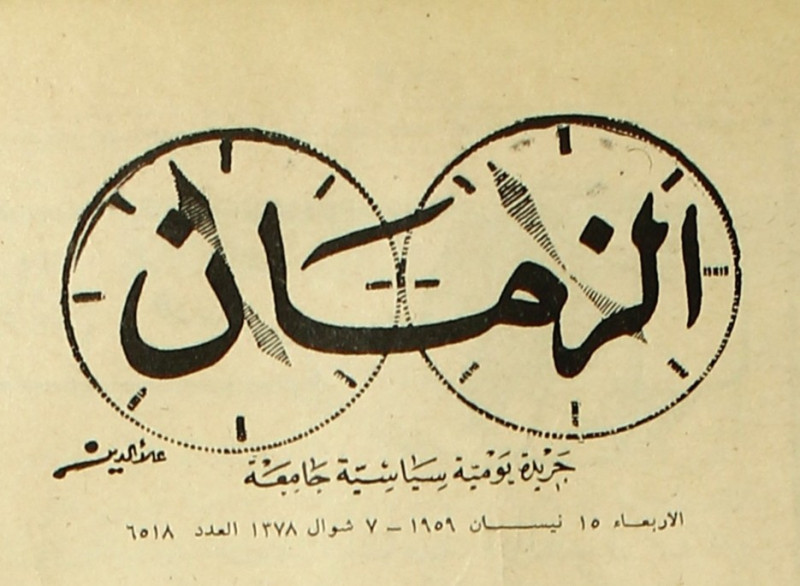 الزمان
علاء الدين
جريدة يومية سياسية جامعة
الاربعاء ١٥ نيسان ١٩٥٩ – ٧ شوال ١٣٧٨ العدد ٦٥١٨